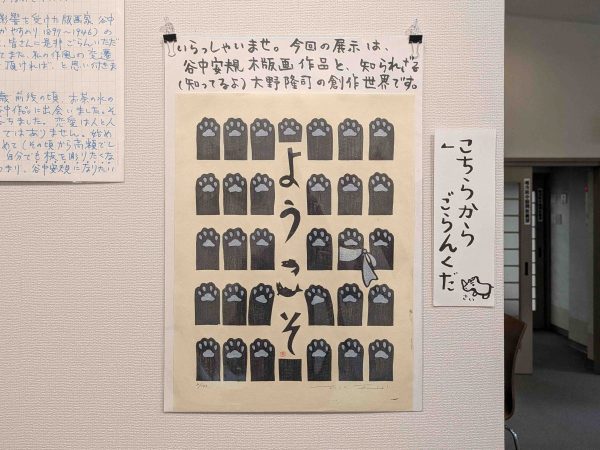 影響を受けた版画家、谷中
かやすのり 1897〜1946)の
、皆さんに是非ごらんいただ
てまた、私の作風の変遷
頂ければ、と思い付きま
歳前後の頃、お茶の水の
中作品に出会いました。そ
ちました。恋愛は人と人
ではありません。始め
めて(その頃から高額でし
自分でも板を彫りたくな
つまり、谷中安規になりたい
いらっしゃいませ。今回の展示は、
谷中安規木版画作品と、知られざる
(知ってるよ)大野隆司の創作世界です。
ようこそ
こちらから
ごらんくだ
さい